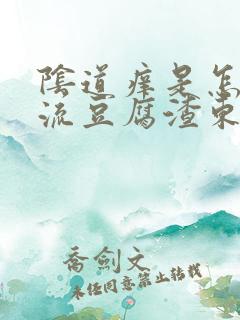 陰道痒是怎
流豆腐渣東
喬劍文
未經同意禁止轉載